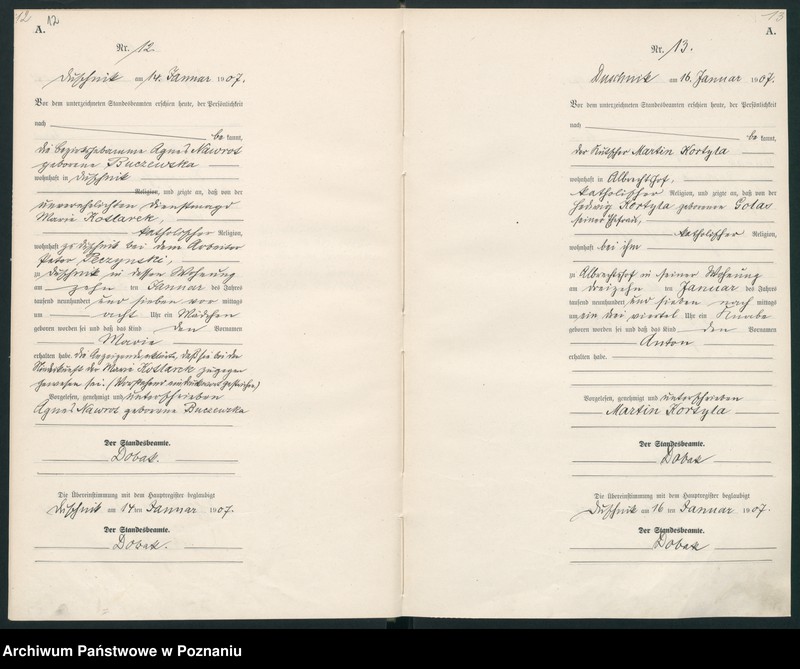 12 12
A.
Nr. 12.
Duschnik am 14. Januar 1907.
Vor dem unterzeichneten Standesbeamten erschien heute, der Persönlichkeit
nach be kannt,
die Bezirkshebamme Agnes Nawrot
geborene Buczewska
wohnhaft in Duschnik
Religion, und zeigte an, daß von der
unverehelichten Dienstmagd
Marie Kotlarek,
katholischer Religion,
wohnhaft zu Duschnik bei dem Arbeiter
Peter
zu Duschnik in dessen Wohnung
am zehn ten Januar des Jahres
tausend neunhundert und sieben vor mittags
um acht Uhr ein Mädchen
geboren worden sei und daß das Kind den Vornamen
Marie
erhalten habe. Die Anzeigende erklärte, daß sie bei der
Niederkunft der Marie Kotlarek zugegen
gewesen sei. (Vorstehend ein Druckwort gestrichen)
Vorgelesen, genehmigt und unterschrieben
Agnes Nawrot geborene Buczewska
Der Standesbeamte.
Dobak.
Die Übereinstimmung mit dem Hauptregister beglaubigt
Duschnik am 14 ten Januar 1907.
Der Standesbeamte.
Dobak.
13
A.
Nr. 13.
Duschnik am 16. Januar 1907.
Vor dem unterzeichneten Standesbeamten erschien heute, der Persönlichkeit
nach be kannt,
der Kutscher Martin Kortyla
wohnhaft in Albrechtshof,
katholischer Religion, und zeigte an, daß von der
Hedwig Kortyla geborenen Golas
seiner Ehefrau,
katholischer Religion,
wohnhaft bei ihm
zu Albrechtshof in seiner Wohnung
am dreizehn ten Januar des Jahres
tausend neunhundert und sieben nach mittags
um ein drei viertel Uhr ein Knabe
geboren worden sei und daß das Kind den Vornamen
Anton
erhalten habe.
Vorgelesen, genehmigt und unterschrieben
Martin Kortyla
Der Standesbeamte.
Dobak
Die Übereinstimmung mit dem Hauptregister beglaubigt
Duschnik am 16 ten Januar 1907.
Der Standesbeamte.
Dobak
Archiwum Państwowe w Poznaniu